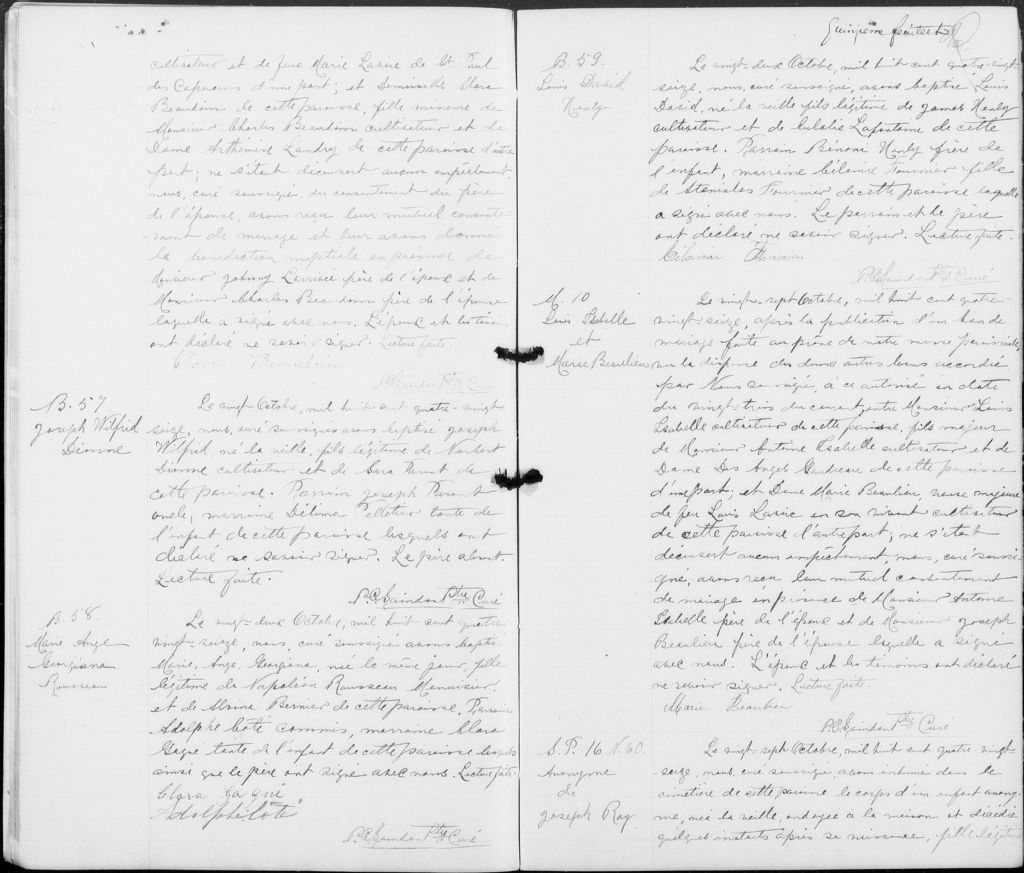 cultivateur et de feue Marie Lavoie de St Paul
des Capucins d'une part; et Demoiselle Clara
Beaudoin de cette paroisse, fille mineure de
Monsieur Charles Beaudoin cultivateur et de
Dame Arthémise Landry de cette paroisse d'autre
part; ne s'étant découvert aucun empêchement,
nous, curé soussigné du consentement du père
de l'épouse, avons reçu leur mutuel consente-
ment de mariage et leur avons donné
la bénédiction nuptiale en présence de
Monsieur Johnny père de l'époux et de
Monsieur Charles Beaudoin père de l'épouse
laquelle a signé avec nous. L'époux et les témoins
ont déclaré ne savoir signer. Lecture faite.
Clara Beaudoin
Ptre Curé
B. 57
Joseph Wilfrid
Dionne
Le vingt Octobre, mil huit cent quatre-vingt
seize, nous, curé soussigné avons baptisé Joseph
Wilfrid, né la veille, fils légitime de Norbert
Dionne cultivateur et de Parent de
cette paroisse. Parrain Joseph Parent
oncle, marraine Délima Pelletier tante de
l'enfant de cette paroisse lesquels ont
déclaré ne savoir signer. Le père absent.
Lecture faite.
Ptre Curé
B. 58.
Marie Ange
Georgiana
Rousseau
Le vingt-deux Octobre, mil huit cent quatre
vingt-seize, nous, curé soussigné avons baptisé
Marie, Ange, Georgiana, née le même jour, fille
légitime de Napoléon Rousseau Menuisier,
et de Bernier de cette paroisse. Parrain
Adolphe Coté commis, marraine Clara
Gagné tante de l'enfant de cette paroisse lesquels
ainsi que le père ont signé avec nous. Lecture faite.
Clara Gagné
Adolphe Coté
Ptre Curé
feuillet
B. 59.
Louis David
Hanly
Le vingt-deux Octobre, mil huit cent quatre-vingt
seize, nous, curé soussigné, avons baptisé Louis
David, né la veille fils légitime de James Hanly
cultivateur et de Eulalie Lafontaine de cette
paroisse. Parrain Bénoni Hanly frère de
l'enfant, marraine Fournier fille
de Stanislas Fournier de cette paroisse laquelle
a signé avec nous. Le parrain et le père
ont déclaré ne savoir signer. Lecture faite.
Fournier
Ptre Curé
M. 10
Louis Isabelle
et
Marie Beaulieu
Le vingt-sept Octobre, mil huit cent quatre-
vingt-seize, après la publication d'un ban de
mariage faite au prône de notre messe paroissiale,
vu la dispense des deux autres bans accordée
par Nous soussigné, à ce autorisé en date
du vingt-trois du courant, entre Monsieur Louis
Isabelle cultivateur de cette paroisse, fils majeur
de Monsieur Antoine Isabelle cultivateur et de
Dame Des Anges Gaudreau de cette paroisse
d'une part; et Dame Marie Beaulieu, veuve majeure
de feu Louis en son vivant cultivateur
de cette paroisse d'autre part; ne s'étant
découvert aucun empêchement, nous, curé soussi-
gné, avons reçu leur mutuel consentement
de mariage en présence de Monsieur Antoine
Isabelle père de l'époux et de Monsieur Joseph
Beaulieu père de l'épouse laquelle a signé
avec nous. L'époux et les témoins ont déclaré
ne savoir signer. Lecture faite.
Marie Beaulieu
Ptre Curé
S.P. 16 N. 60.
Anonyme
de
Joseph Roy
Le vingt-sept Octobre, mil huit cent quatre-vingt
-seize, nous, curé soussigné, avons inhumé dans le
cimetière de cette paroisse le corps d'un enfant anony-
me, née la veille, ondoyée à la maison et décédée
quelques instants après sa naissance, fille légitime